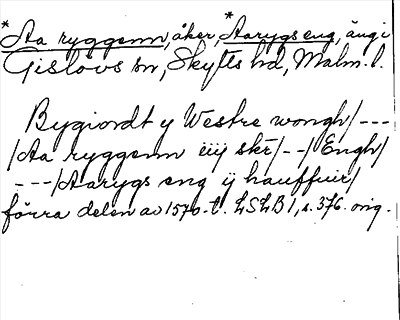 *Aa ryggenn, åker, *Aarygs eng, äng i
Gislövs sn, Skytts hd, Malm. l.
Bygiordt y Westre wongh/---
/Aa ryggenn iiij skr/--/Engh/
---/Aarygs eng ij hauffuir/
förra delen av 1570-t. LSLB 1, s. 376. orig.